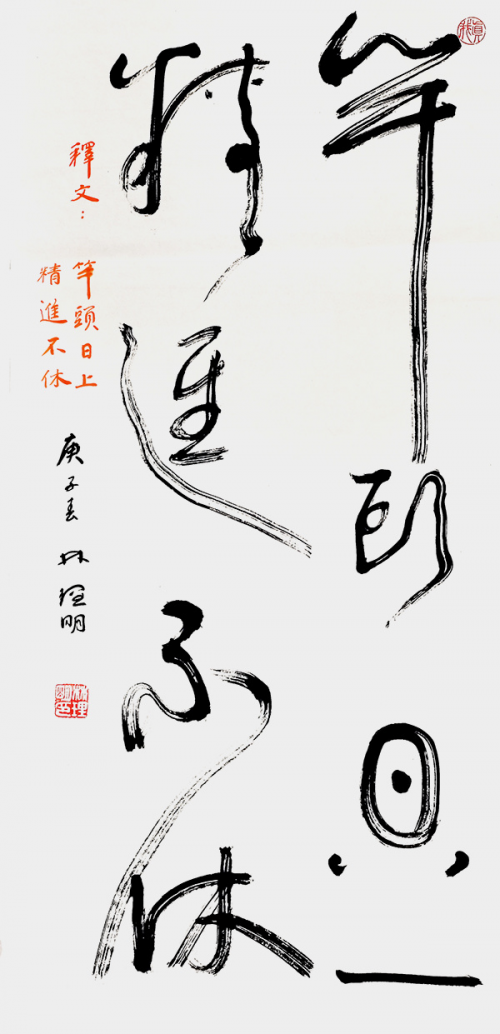 竿頭日上
精進不休
釋文：
竿頭日上
精進不休
庚子春 林理明
真我